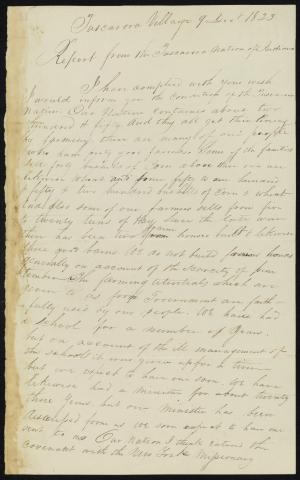 Tuscarora Village 9 Decr 1823
Report from the Tuscarora Nation of Indians
I have complied with your wish
I would inform you the Condition of the Tuscarora
Nation. Our Nation contains about two
hundred & fifty. And they all get their living
by farming there are many of our people
who are very good farmers some of the families
that are
likewise wheat and some fifty to one hundred
& fifty & two hundred bushels of corn & wheat
And also some of our farmers sells from five
to twenty tons of Hay since the late war
there has been two frame houses built & likewise
three barns. We do not build frame houses
generally on account of the scarcity of pine
timber. The farming utensials which are
given to us from Government are faith-
fully used by our people. We have had
a school for a number of years.
but on account of the ill management of
the school it was given up for a time
but we expect to have one soon. We have
likewise had a minister for about twenty
three years. but our Minister has been
dismissed from us we soon expect to have one
sent to us Our Nation I think extend the
covenant with the New York Missionary